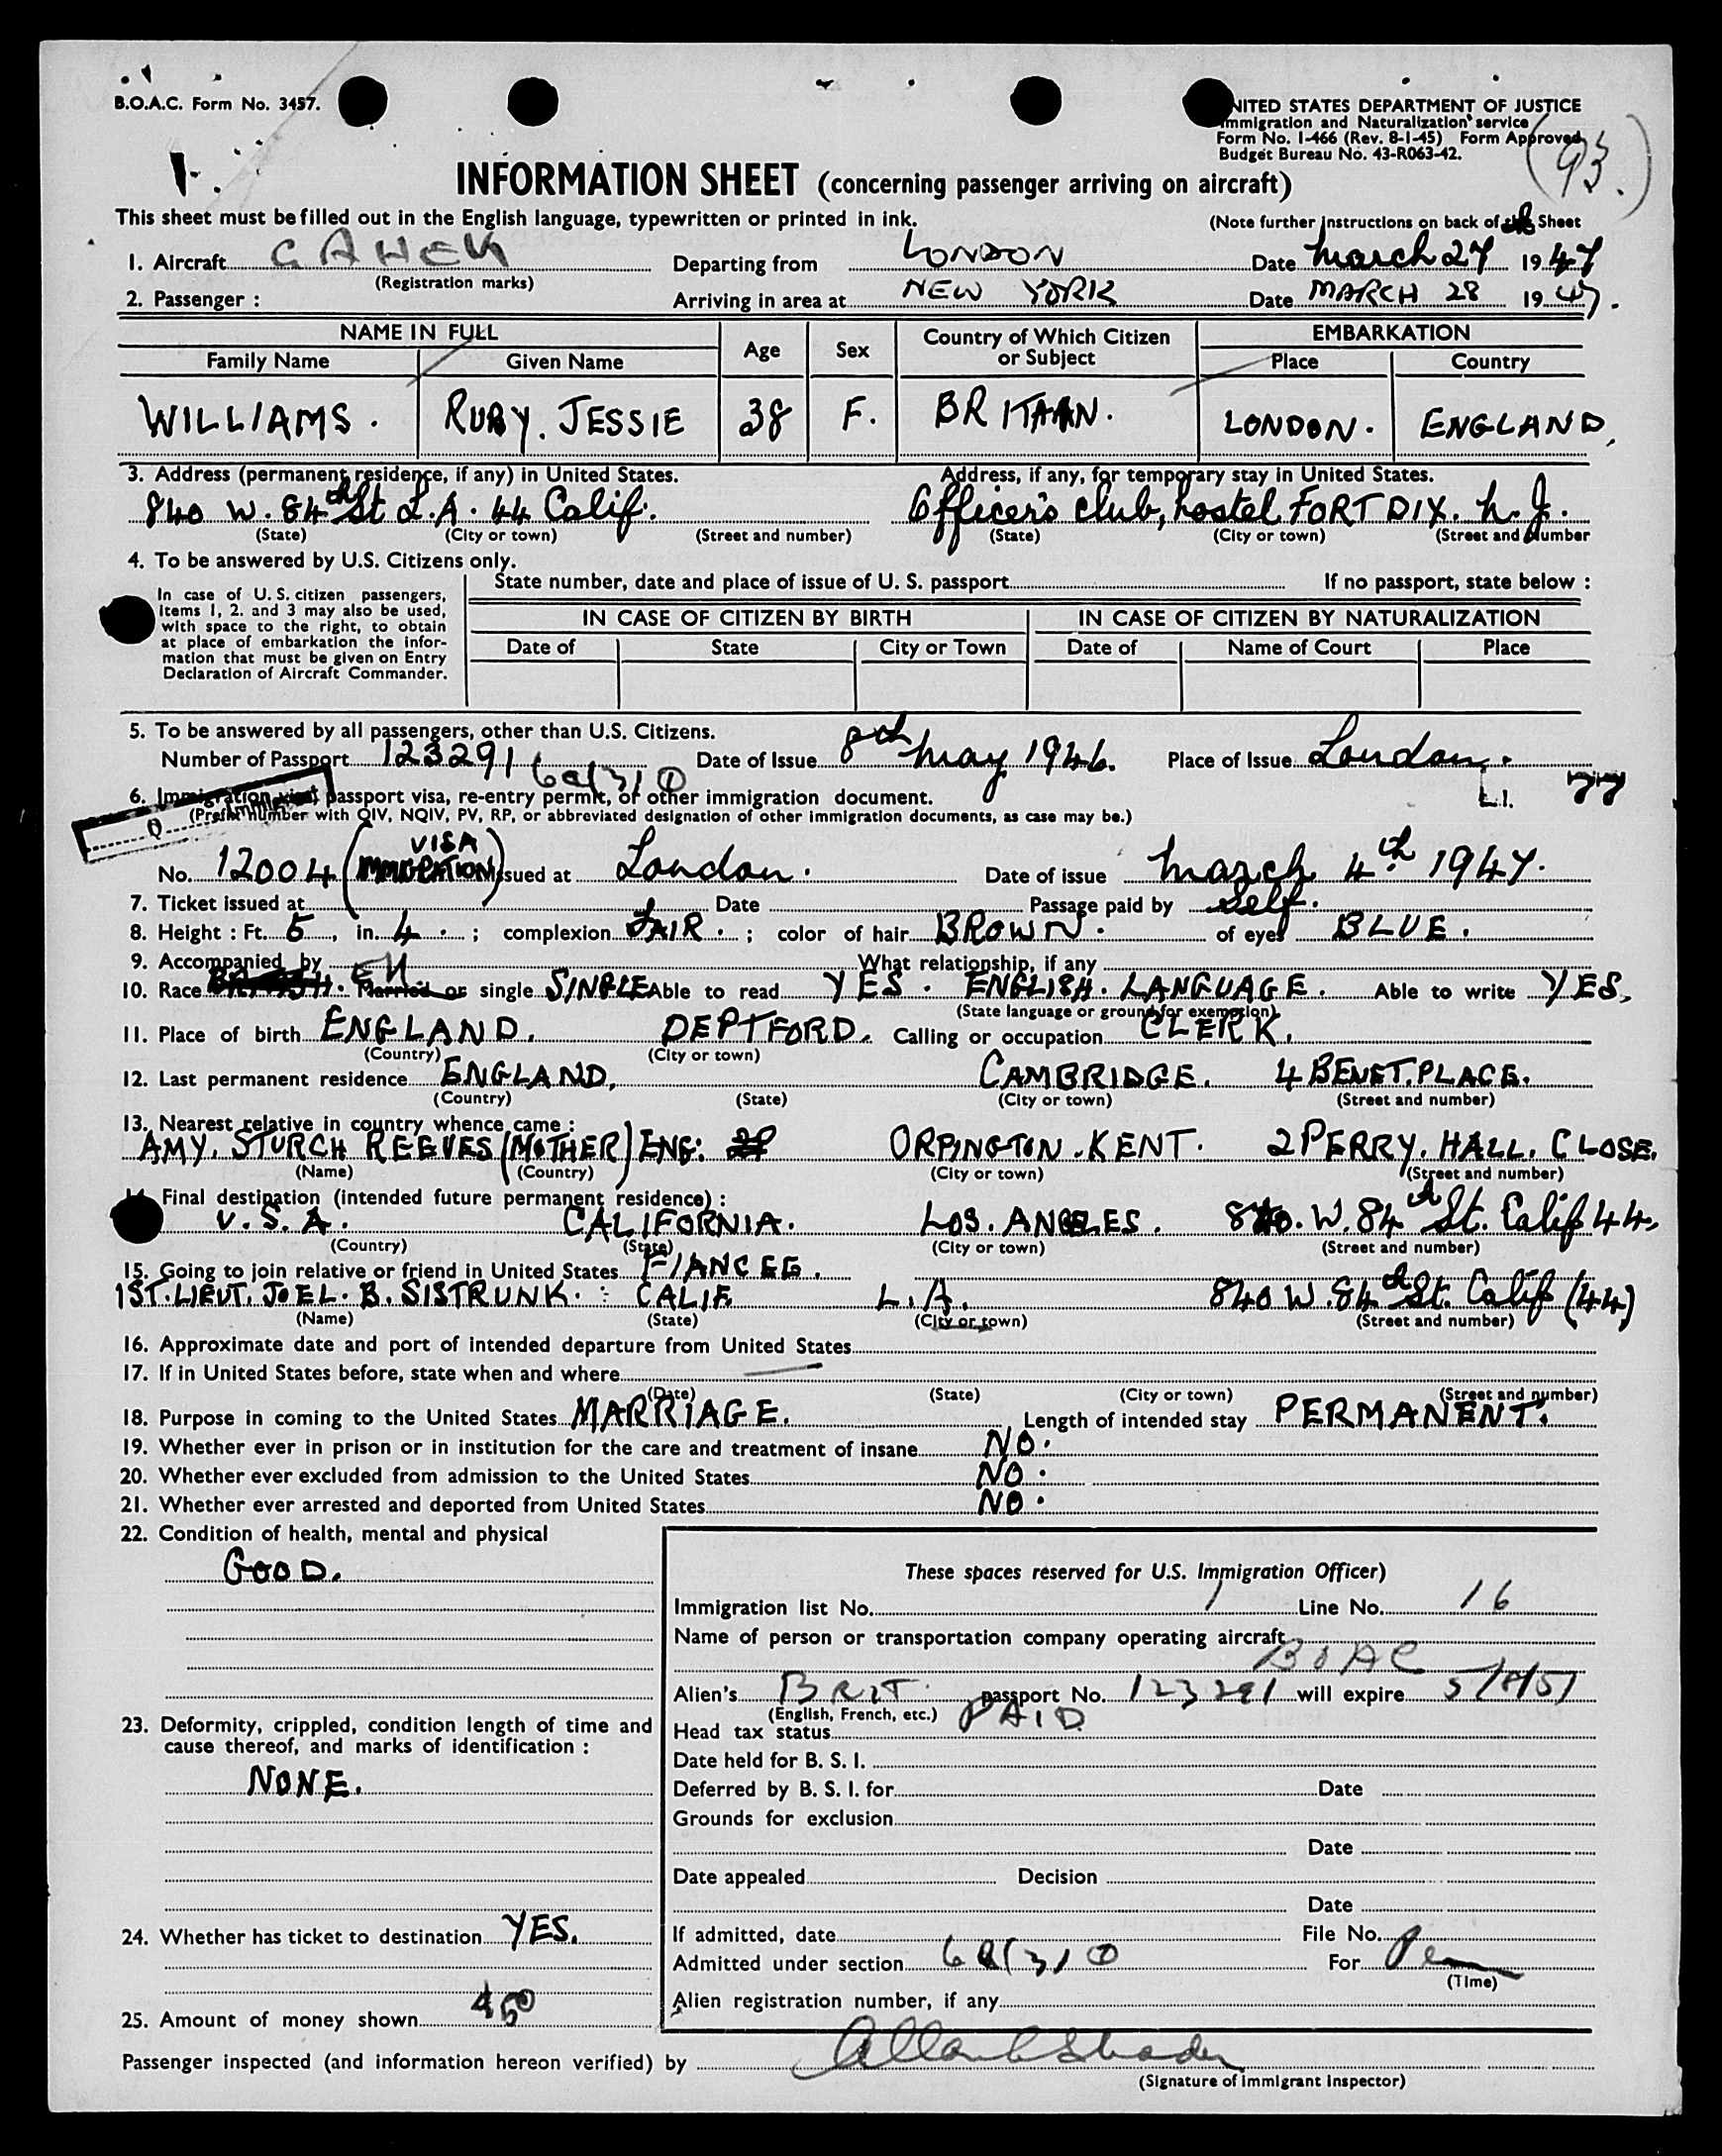 B.O.A.C. Form No. 3457.
UNITED STATES DEPARTMENT OF JUSTICE
Immigration and Naturalization service
Form No. I-466 (Rev. 8-1-45) Form Approved
Budget Bureau No. 43-R063-42.
(93.)
INFORMATION SHEET (concerning passenger arriving on aircraft)
This sheet must be filled out in the English language, typewritten or printed in ink.
(Note further instructions on back of Sheet
1. Aircraft GAHEK Departing from LONDON Date March 27 1947
(Registration marks)
2. Passenger : Arriving in area at NEW YORK Date MARCH 28 1947.
NAME IN FULL Age Sex Country of Which Citizen or Subject EMBARKATION
Family Name Given Name Place Country
WILLIAMS. RUBY. JESSIE 38 F. BRITAIN. LONDON. ENGLAND,
3. Address (permanent residence, if any) in United States. Address, if any, for temporary stay in United States.
840 W. 84th St L.A. 44 Calif. Officer's club, hostel FORT DIX. N.J.
(State) (City or town) (Street and number) (State) (City or town) (Street and number
4. To be answered by U.S. Citizens only.
State number, date and place of issue of U. S. passport If no passport, state below :
In case of U. S. citizen passengers,
items 1, 2. and 3 may also be used,
with space to the right, to obtain
at place of embarkation the infor-
mation that must be given on Entry
Declaration of Aircraft Commander.
IN CASE OF CITIZEN BY BIRTH IN CASE OF CITIZEN BY NATURALIZATION
Date of State City or Town Date of Name of Court Place
5. To be answered by all passengers, other than U.S. Citizens.
Number of Passport 123291 Date of Issue 8th May 1946. Place of Issue London.
6a(3)①
6. Immigration visa, passport visa, re-entry permit, or other immigration document.
(Prefix number with QIV, NQIV, PV, RP, or abbreviated designation of other immigration documents, as case may be.)
No. 12004 (VISA IMMIGRATION) Issued at London. Date of issue March 4th 1947.
7. Ticket issued at Date Passage paid by Self.
8. Height : Ft. 5, in. 4. ; complexion FAIR. ; color of hair BROWN. of eyes BLUE.
9. Accompanied by What relationship, if any
10. Race EN. Married or single SINGLE Able to read YES. ENGLISH. LANGUAGE. Able to write YES,
(State language or ground for exemption)
11. Place of birth ENGLAND. DEPTFORD. Calling or occupation CLERK.
(Country) (City or town)
12. Last permanent residence ENGLAND, CAMBRIDGE. 4 BENET. PLACE.
(Country) (State) (City or town) (Street and number)
13. Nearest relative in country whence came :
AMY. STURCH REEVES (MOTHER) ENG: ORPINGTON. KENT. 2 PERRY. HALL. CLOSE.
(Name) (Country) (City or town) (Street and number)
Final destination (intended future permanent residence) :
U.S.A. CALIFORNIA. LOS. ANGELES. 840. W. 84th St. Calif 44,
(Country) (State) (City or town) (Street and number)
15. Going to join relative or friend in United States FIANCEE.
1ST. LIEUT. JOEL. B. SISTRUNK. CALIF. L.A. 840 W. 84th St. Calif (44)
(Name) (State) (City or town) (Street and number)
16. Approximate date and port of intended departure from United States
17. If in United States before, state when and where
(Date) (State) (City or town) (Street and number)
18. Purpose in coming to the United States MARRIAGE. Length of intended stay PERMANENT.
19. Whether ever in prison or in institution for the care and treatment of insane NO.
20. Whether ever excluded from admission to the United States NO.
21. Whether ever arrested and deported from United States NO.
22. Condition of health, mental and physical
GOOD.
These spaces reserved for U.S. Immigration Officer)
Immigration list No. 1 Line No. 16
Name of person or transportation company operating aircraft
BOAC
Alien's BRIT. passport No. 123291 will expire 5/8/51
(English, French, etc.)
Head tax status PAID
Date held for B. S. I.
Deferred by B. S. I. for Date
Grounds for exclusion
Date
Date appealed Decision
Date
If admitted, date File No.
Admitted under section 6a(3)① For Perm
(Time)
Alien registration number, if any
23. Deformity, crippled, condition length of time and
cause thereof, and marks of identification :
NONE.
24. Whether has ticket to destination YES.
25. Amount of money shown 450
Passenger inspected (and information hereon verified) by
(Signature of Immigrant Inspector)